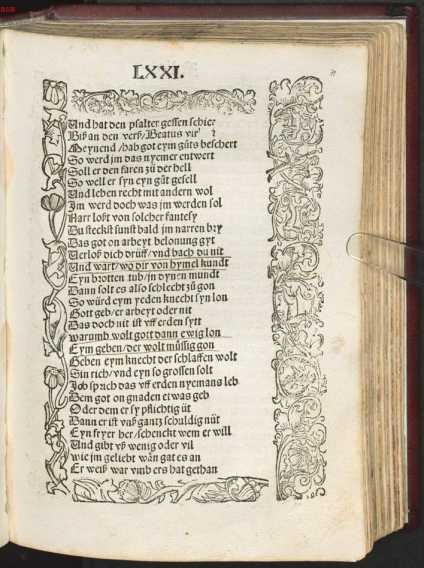 LXXI.
Und hat den psalter gessen schier
Biß an den verß/Beatus vir
Meynend/hab got eym gůts beschert
So werd jm das nyemer entwert
Soll er den faren zů der hell
So well er syn eyn gůt gesell
Und leben recht mit andern wol
Jm werd doch was jm werden sol
Narr loßt von solcher fantesy
Du steckst sunst bald jm narren bry
Das got on arbeyt belonung gyt
Verloß dich druff/vnd bach du nit
Und wart/wo dir von hymel kundt
Eyn brotten tub/in dynen mundt
Dann solt es also schlecht zů gon
So würd eym yeden knecht syn lon
Gott geb/er arbeyt oder nit
Das doch nit ist vff erden sytt
warumb wolt gott dann ewig lon
Eym geben/der wolt müssig gon
Geben eym knecht der schlaffen wolt
Sin rich/vnd eyn so grossen solt
Job sprich das vff erden nyemans leb
Dem got on gnaden etwas geb
Oder dem er sy pflichtig üt
Dann er ist vnß gantz schuldig nüt
Eyn fryer her/schenckt wem er will
Und gibt vß wenig oder vil
wie jm geliebt wān gat es an
Er weiß war vmb ers hat gethan